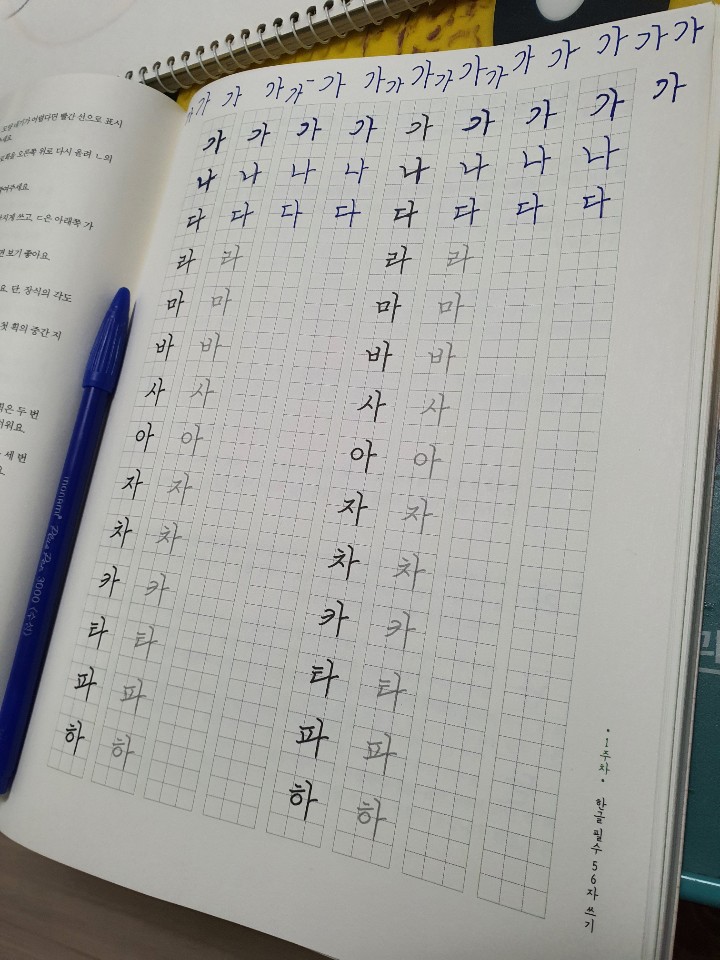 모양 내기가 어렵다면 빨간 선으로 표시
오른쪽 위로 다시 올려 ㄴ의
쓰고, ㄷ은 아래쪽 가
보기 좋아요.
단, 장식의 각도
첫 획의 중간 지
획은 두 번
세 번
monami Plus Pen 3000 (수성)
가 가 가 가 가 가 가 가 가 가 가 가 가 가 가 가 가
가 가 가 가 가 가 가 가 가
나 나 나 나 나 나 나 나
다 다 다 다 다 다 다 다
라 라 라 라
마 마 마 마
바 바 바 바
사 사 사 사
아 아 아 아
자 자 자 자
차 차 차 차
카 카 카 카
타 타 타 타
파 파 파 파
하 하 하 하
• 1주차 • 한글 필수 56자 쓰기